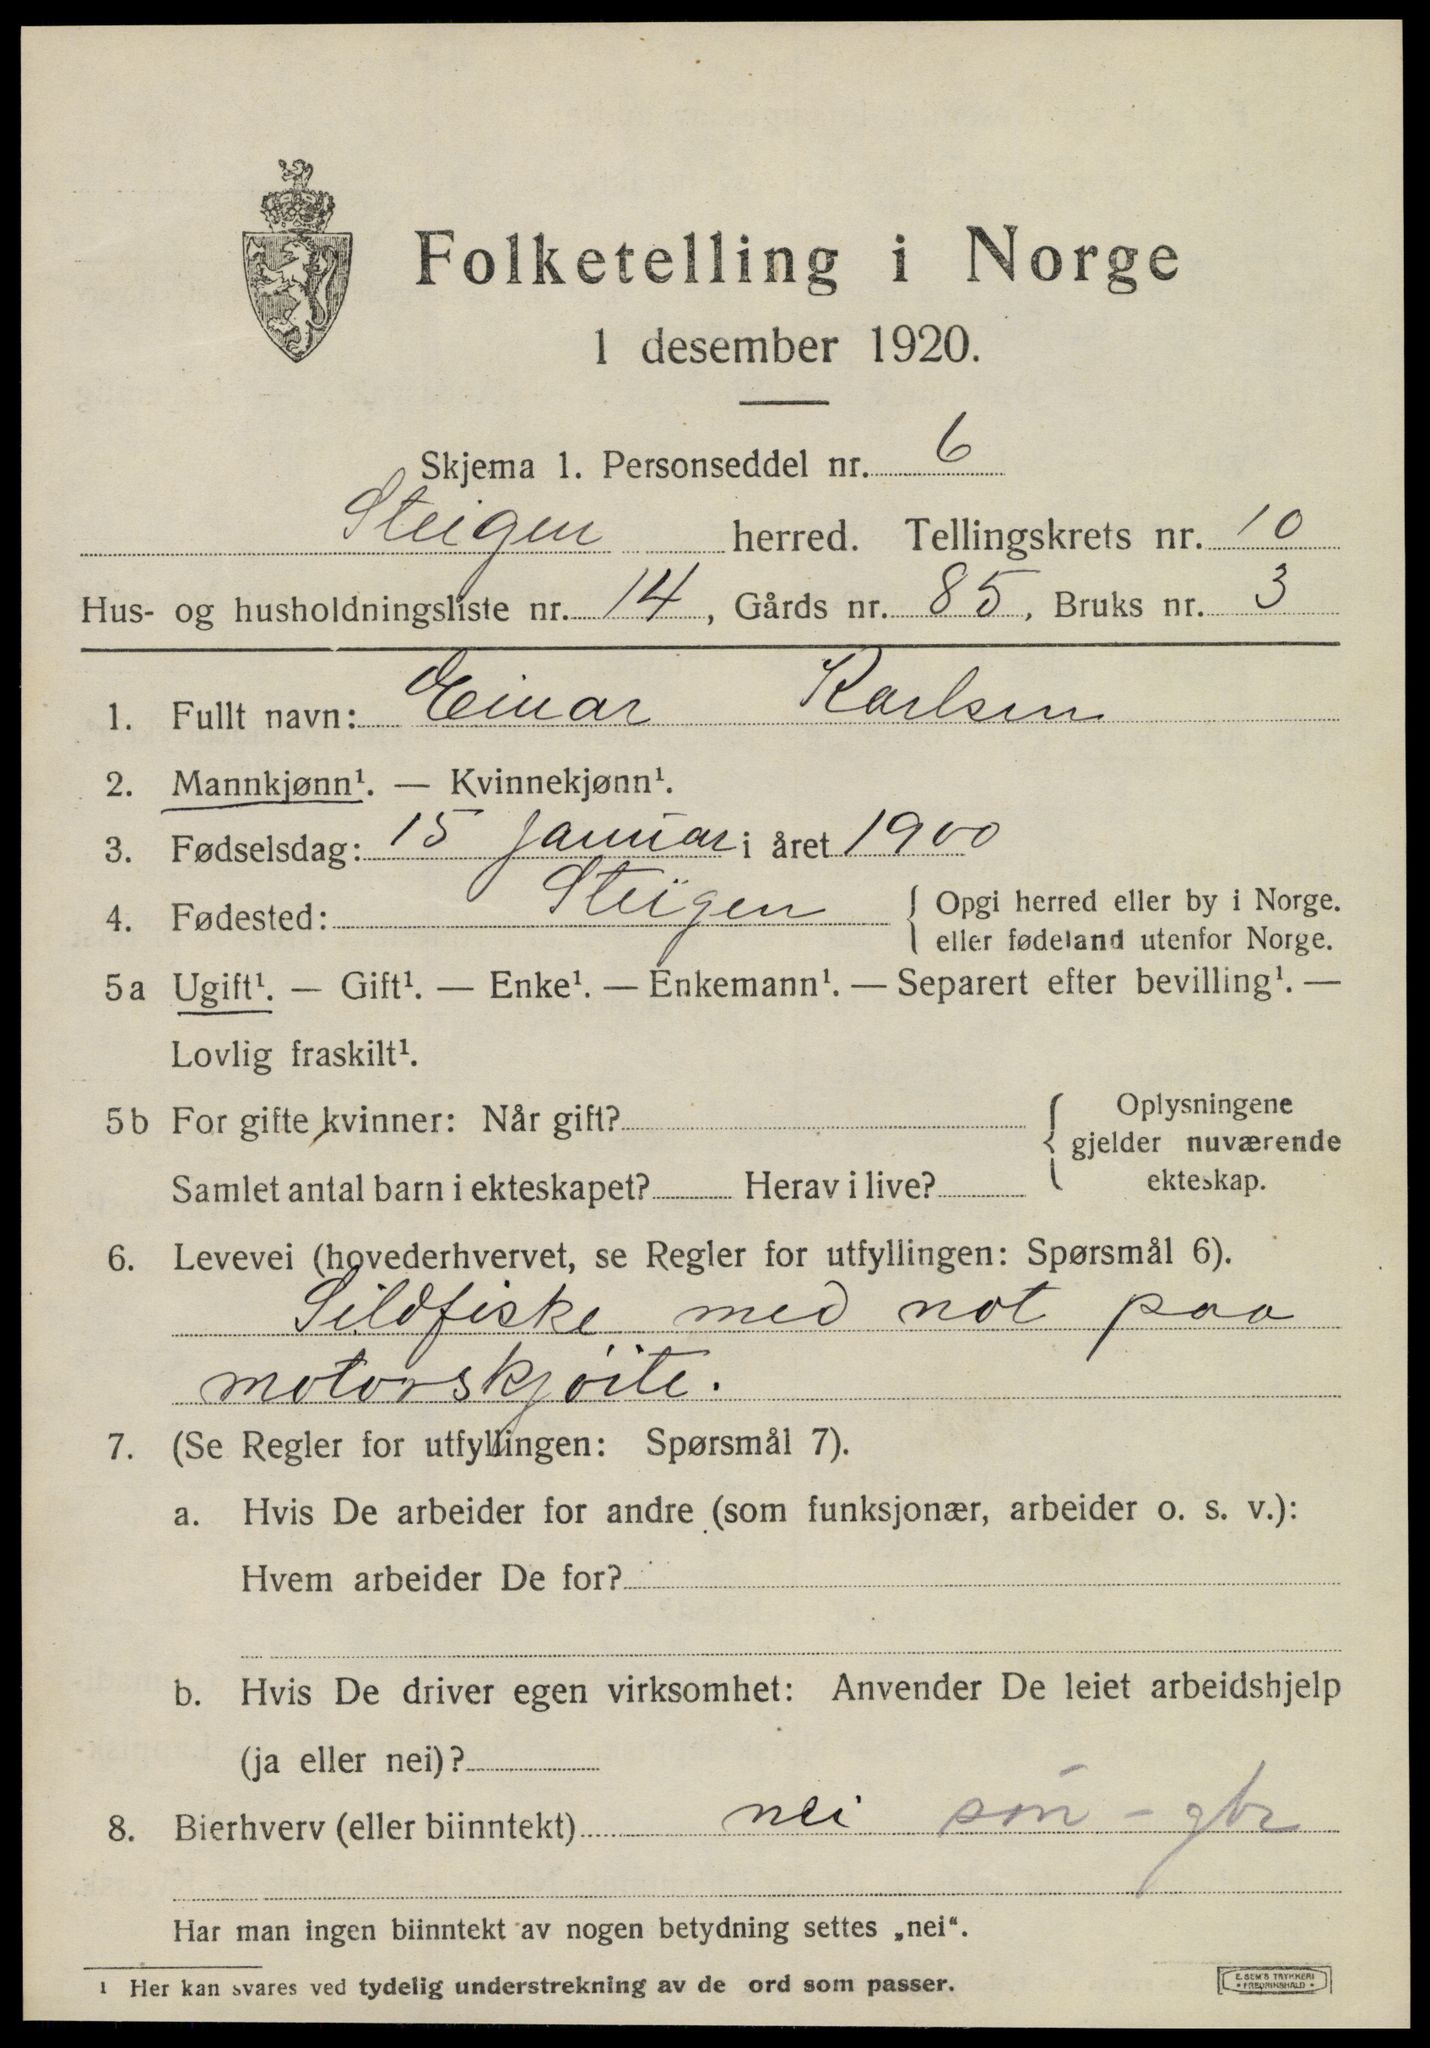 Folketelling i Norge
1 desember 1920.
Skjema 1. Personseddel nr. 6
Steigen herred. Tellingskrets nr. 10
Hus- og husholdningsliste nr. 14, Gårds nr. 85, Bruks nr. 3
1. Fullt navn: Einar Karlsen
2. Mannkjønn¹. — Kvinnekjønn¹.
3. Fødselsdag: 15 januar i året 1900
4. Fødested: Steigen { Opgi herred eller by i Norge.
eller fødeland utenfor Norge.
5a Ugift¹. — Gift¹. — Enke¹. — Enkemann¹. — Separert efter bevilling¹. —
Lovlig fraskilt¹.
5b For gifte kvinner: Når gift? { Oplysningene
gjelder nuværende
Samlet antal barn i ekteskapet? Herav i live? ekteskap.
6. Levevei (hovederhvervet, se Regler for utfyllingen: Spørsmål 6).
Sildfiske med not paa
motorskjöite.
7. (Se Regler for utfyllingen: Spørsmål 7).
a. Hvis De arbeider for andre (som funksjonær, arbeider o. s. v.):
Hvem arbeider De for?
b. Hvis De driver egen virksomhet: Anvender De leiet arbeidshjelp
(ja eller nei)?
8. Bierhverv (eller biinntekt) nei søn - gbr
Har man ingen biinntekt av nogen betydning settes „nei“.
1 Her kan svares ved tydelig understrekning av de ord som passer.
E. SEM'S TRYKKERI
• FREDRIKSHALD •